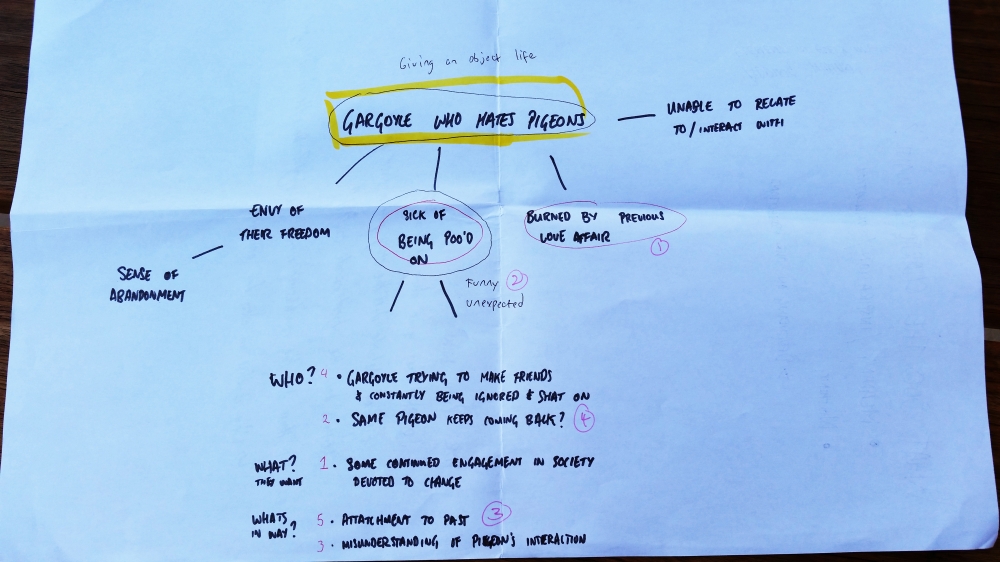 Giving an object life
GARGOYLE WHO HATES PIGEONS
UNABLE TO RELATE
TO/INTERACT WITH
ENVY OF
THEIR FREEDOM
SENSE OF
ABANDONMENT
SICK OF
BEING POO'D
ON
Funny 2
unexpected
BURNED BY PREVIOUS
LOVE AFFAIR
1
WHO? 4 • GARGOYLE TRYING TO MAKE FRIENDS
& CONSTANTLY BEING IGNORED & SHAT ON
2 • SAME PIGEON KEEPS COMING BACK? 4
WHAT? 1 • SOME CONTINUED ENGAGEMENT IN SOCIETY
THEY WANT DEVOTED TO CHANGE
WHATS 5 • ATTATCHMENT TO PAST 3
IN WAY? 3 • MISUNDERSTANDING OF PIGEON'S INTERACTION